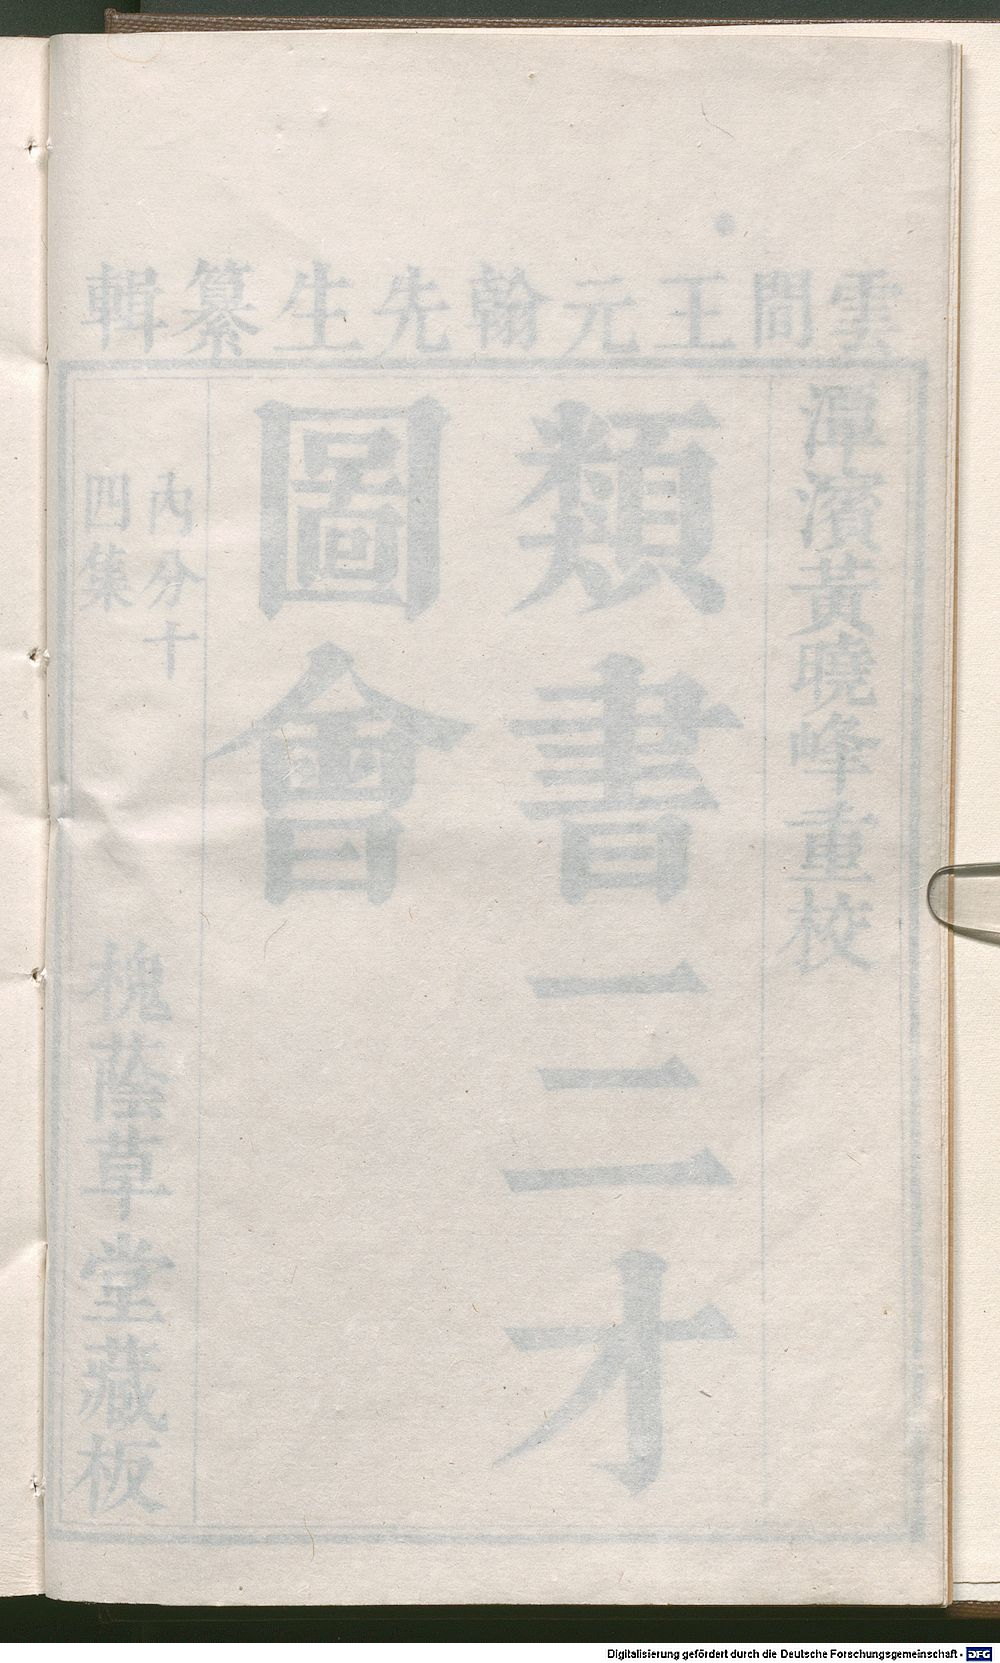 雲間王元翰先生纂輯
潭濱黃曉峰重校
類書三才
圖會
內分十
四集
槐蔭草堂藏板
Digitalisierung gefördert durch die Deutsche Forschungsgemeinschaft - DFG